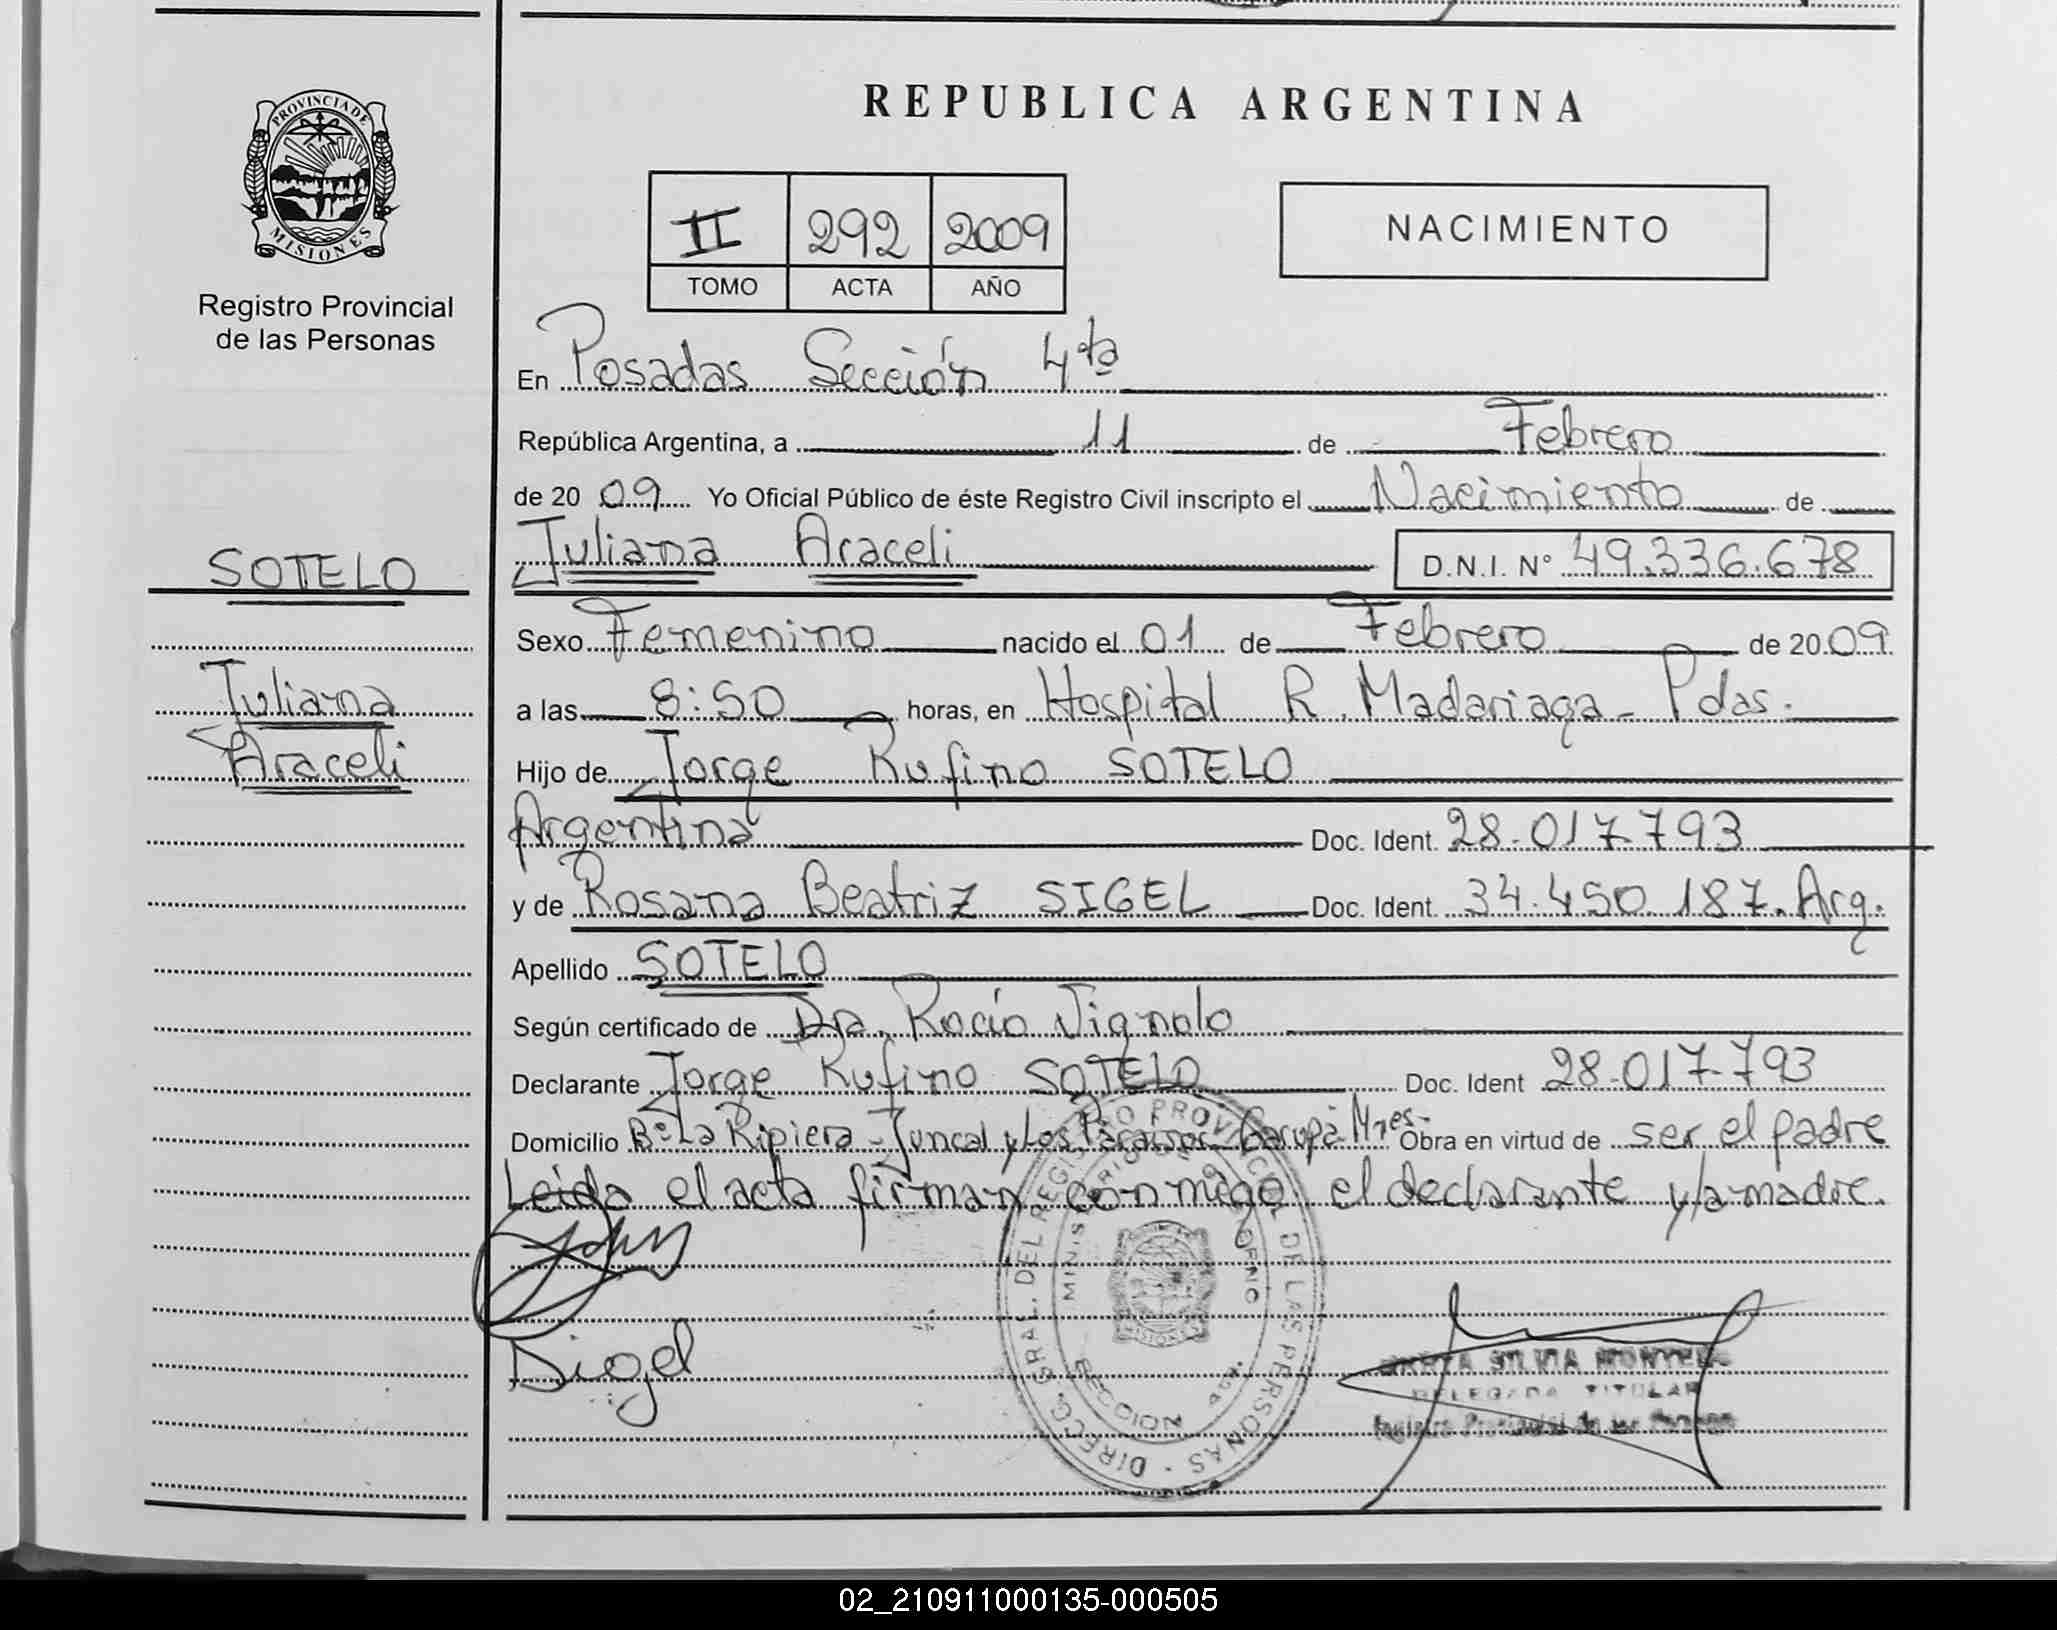 REPUBLICA ARGENTINA
PROVINCIA DE
MISIONES
Registro Provincial
de las Personas
II 292 2009
TOMO ACTA AÑO
NACIMIENTO
En Posadas Sección 4ta
República Argentina, a 11 de Febrero
de 20 09 Yo Oficial Público de éste Registro Civil inscripto el Nacimiento de
Juliana Araceli D.N.I. Nº 49.336.678
SOTELO
Juliana
Araceli
Sexo Femenino nacido el 01 de Febrero de 20 09
a las 8:50 horas, en Hospital R. Madariaga - Pdas.
Hijo de Jorge Rufino SOTELO
Argentina Doc. Ident. 28.017.793
y de Rosana Beatriz SIGEL Doc. Ident. 34.450.187. Arg.
Apellido SOTELO
Según certificado de Dra. Rocío Vignolo
Declarante Jorge Rufino SOTELO Doc. Ident 28.017.793
Domicilio Bº La Ripiera - Juncal y Los Garupá - Mnes - Obra en virtud de ser el padre
Leida el acta firman conmigo el declarante y la madre.
Sigel
DIRECC. GRAL. DEL REGISTRO PROVINCIAL DE LAS PERSONAS
SECCION
SILVIA
DELEGADA TITULAR
Registro Provincial de las Personas
02_210911000135-000505